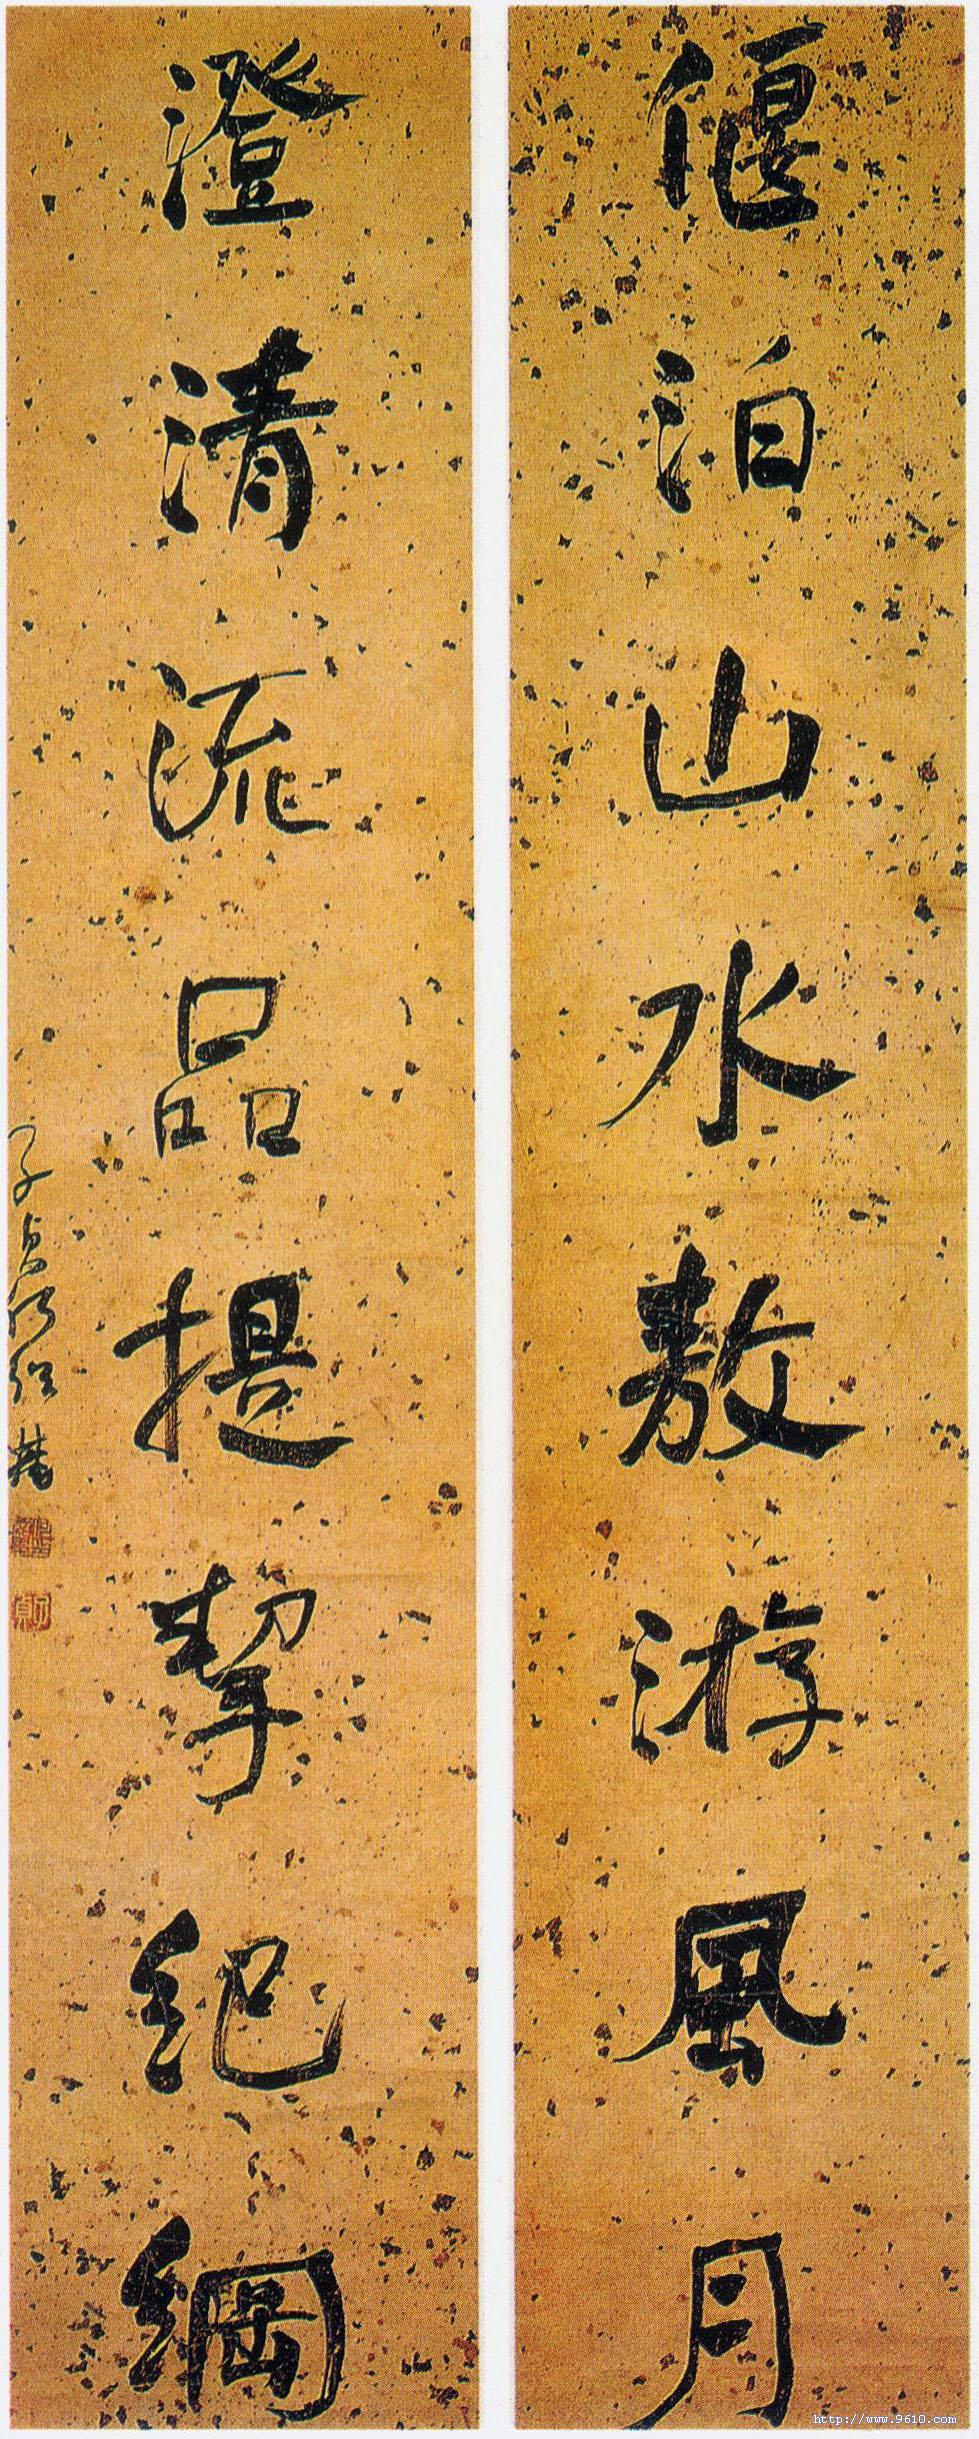 偃泊山水敖游风月
澄清流品提挈纪纲
子贞何绍基
http://www.9610.com